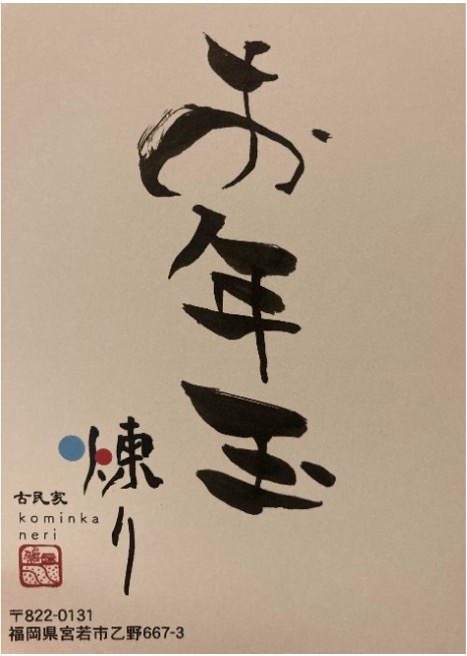 お年玉
煉り
古民家
kominka
neri
〒822-0131
福岡県宮若市乙野667-3